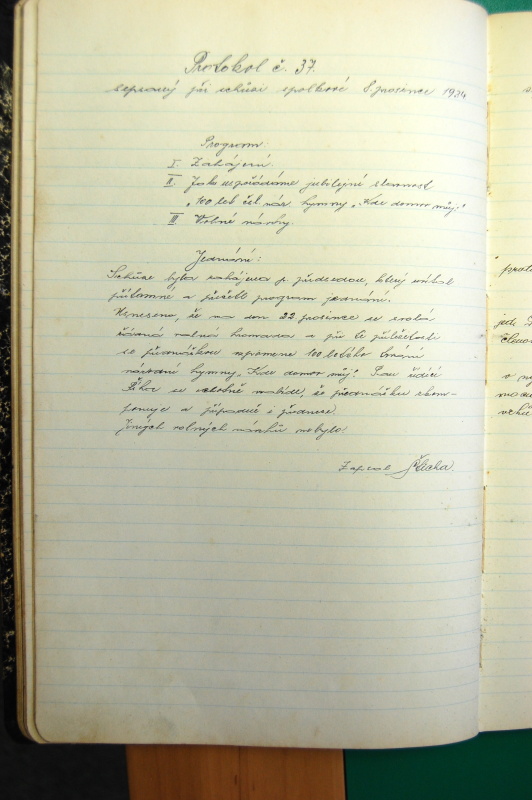 Protokol č. 37.
sepsaný při schůzi spolkové 8. prosince 1934
Program:
I. Zahájení.
II. Jako uspořádáme jubilejné slavnost
"100 let čsl. nár. hymny "Kde domov můj."
III Volné návrhy.
Jednání:
Schůze byla zahájena p. předsedou, který uvítal
přítomné a přečetl program jednání.
Usneseno, že na den 22 prosince se svolá
valná hromada a při té příležitosti
se přednáškou vzpomene 100 letého trvání
národní hymny "Kde domov můj." Pan řídící
se ochotně nabídl, že přednášku
a případně i přednese.
Jiných volných návrhů nebylo.
Zapsal
proto
jedi
o